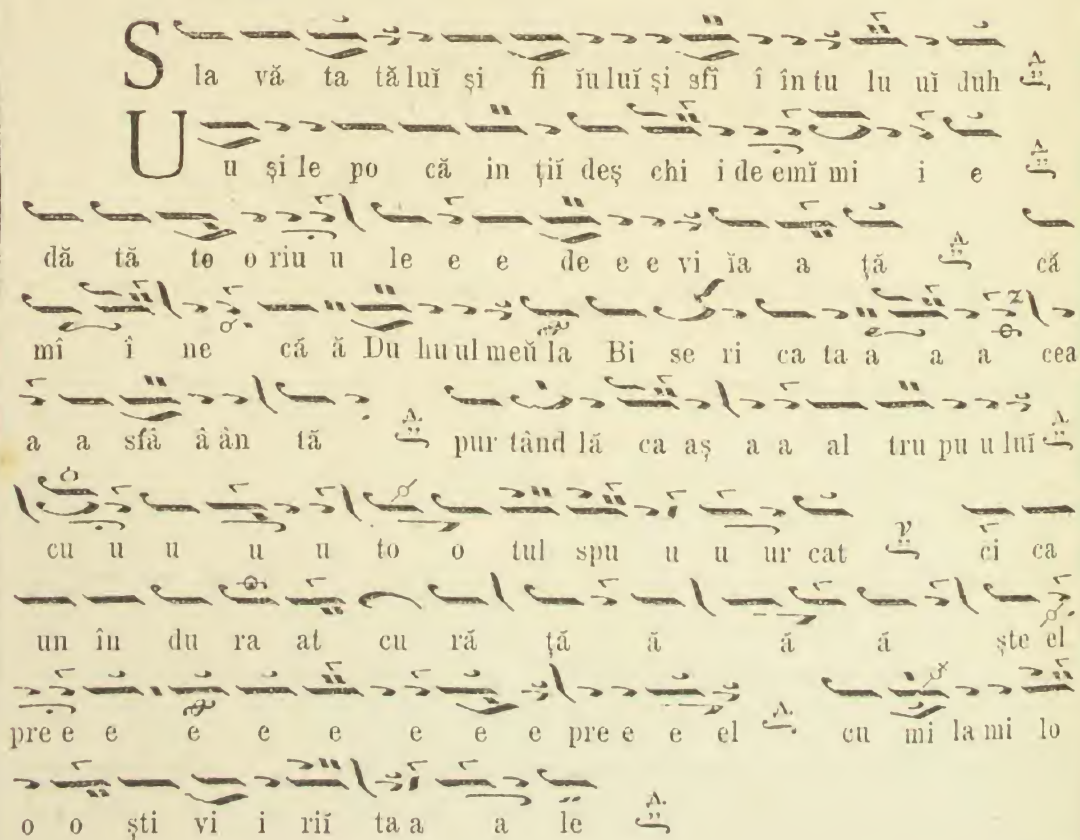 Sla vă ta tă luĭ și fi ĭu luĭ și sfî î în tu lu uĭ duh
U u și le po că in țiĭ deș chi i de emĭ mi i e
dă tă to o riu u le e e de e e vi ĭa a ță că
mî î ne că ă Du hu ul meŭ la Bi se ri ca ta a a a cea
a a sfâ â ân tă pur tând lă ca aș a a al tru pu u luĭ
cu u u u u to o tul spu u u ur cat ci ca
un în du ra at cu ră ță ă ă ă ște el
pre e e e e e e e e pre e e el cu mi la mi lo
o o ști vi i riĭ ta a a le